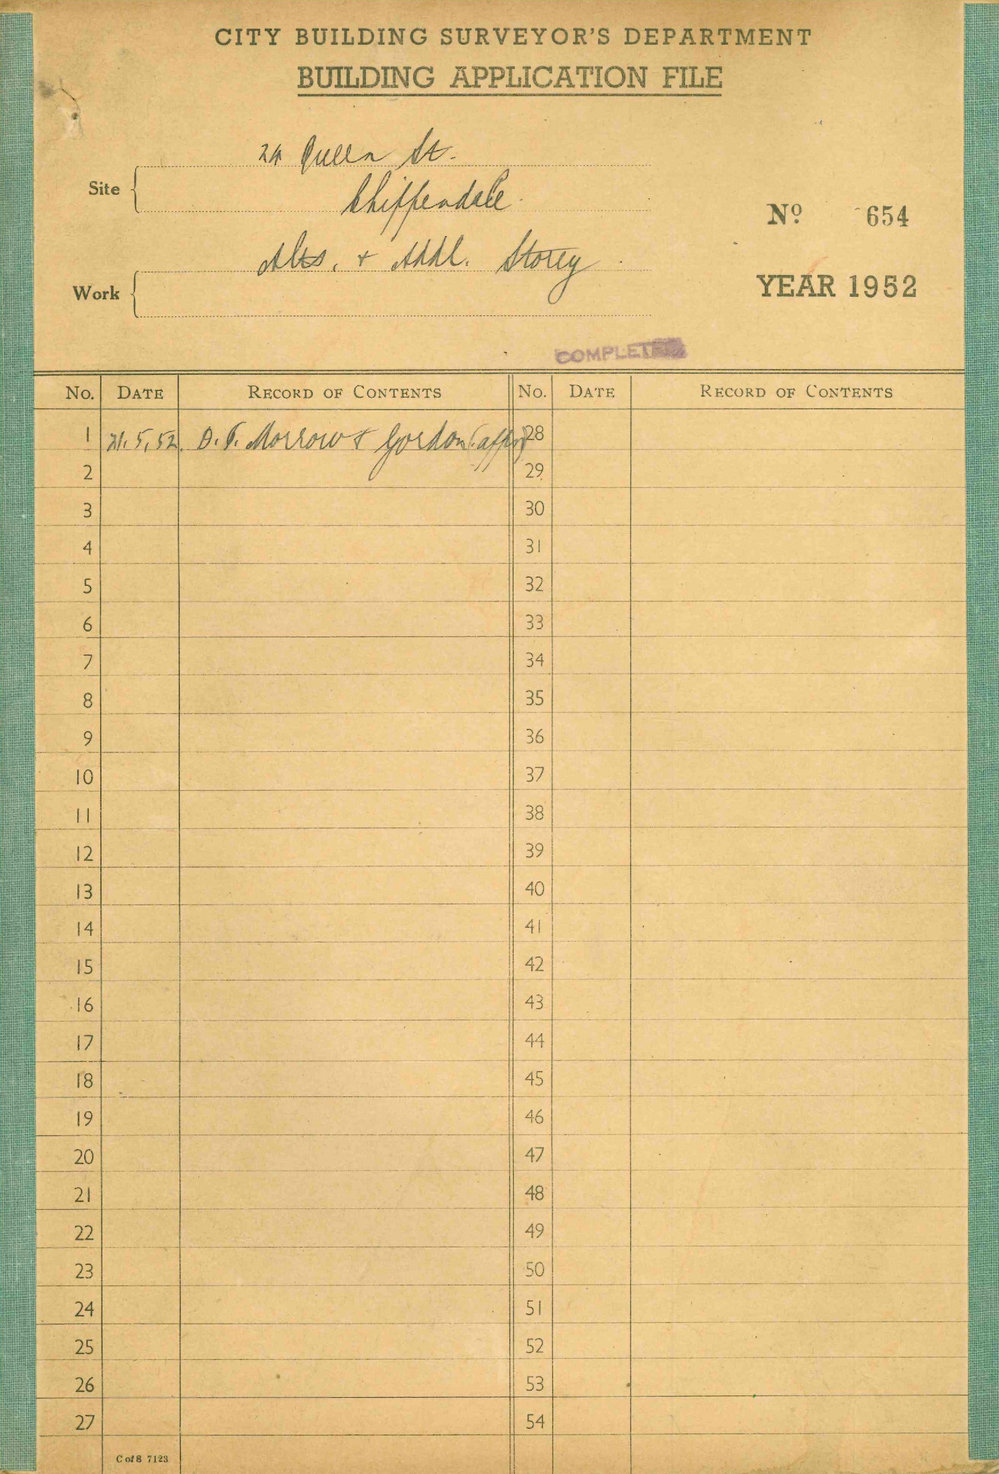 CITY BUILDING SURVEYOR'S DEPARTMENT
BUILDING APPLICATION FILE
Site
24 Queen St.
Chippendale.
Nº 654
Work
Alts. + Addl. Storey
YEAR 1952
COMPLETED
No. DATE RECORD OF CONTENTS No. DATE RECORD OF CONTENTS
1 21.5.52. D.T. Morrow & Gordon (appn) 28
2 29
3 30
4 31
5 32
6 33
7 34
8 35
9 36
10 37
11 38
12 39
13 40
14 41
15 42
16 43
17 44
18 45
19 46
20 47
21 48
22 49
23 50
24 51
25 52
26 53
27 54
C of S 7123